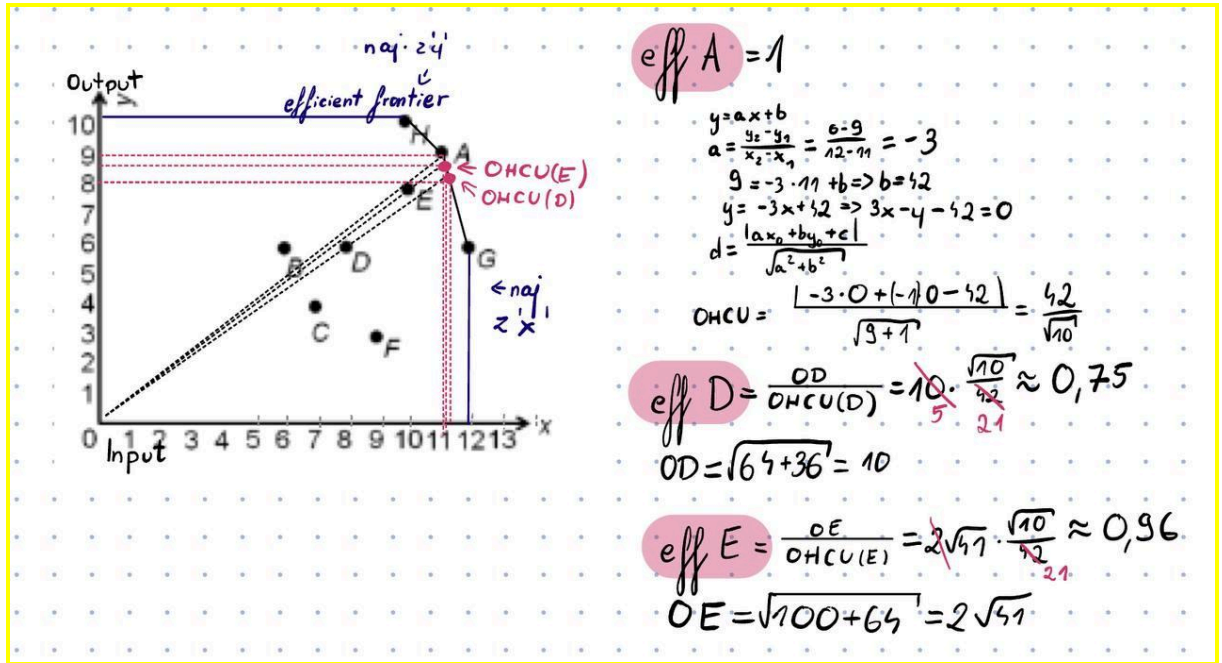 naj. z 'y'
Output
y
efficient frontier
10
H
9
A
OHCU(E)
8
OHCU(D)
7
E
6
B
D
G
5
← naj
z 'x'
4
C
F
3
2
1
0 1 2 3 4 5 6 7 8 9 10 11 12 13 x
Input
eff A = 1
y=ax+b
a = \frac{y₂-y₁}{x₂-x₁} = \frac{6-9}{12-11} = -3
9 = -3·11 +b => b=42
y = -3x+42 => 3x-y-42=0
d = \frac{|ax₀+by₀+c|}{\sqrt{a²+b²}}
OHCU = \frac{|-3·0+(-1)0-42|}{\sqrt{9+1}} = \frac{42}{\sqrt{10}}
eff D = \frac{OD}{OHCU(D)} = 10 · \frac{\sqrt{10}}{42} ≈ 0,75
5 21
OD = √64+36 = 10
eff E = \frac{OE}{OHCU(E)} = 2√41 · \frac{\sqrt{10}}{42} ≈ 0,96
21
OE = √100+64 = 2√41